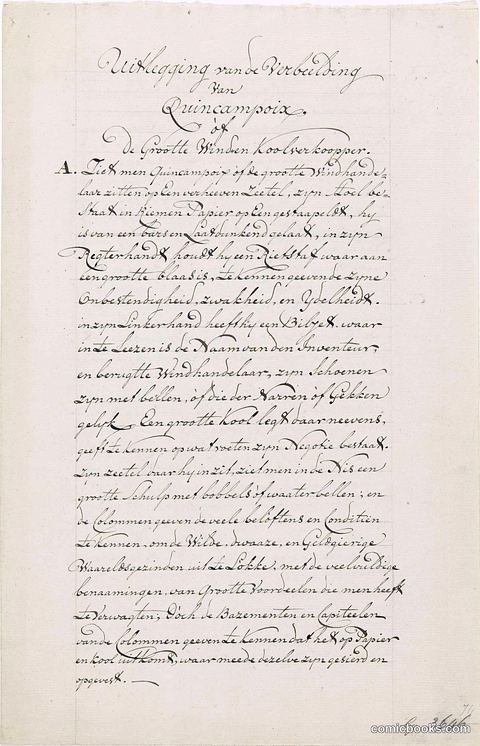 Uitlegging van de Verbeelding
van
Quincampoix.
óf
de Grootte Wind en Koolverkooper.
A. Ziet men Quincampoix of de grootte Windhande-
laar zitten op Een verheeven Zeetel, zyn Stoel be-
Staat in Riemen Papier op Een gestaapeldt, hy
is van een bars en Laatdunkend gelaat, in zyn
Regterhandt houdt hy een Rietstaf waar aan
een grootte blaas is, te kennen geevende zyne
Onbestendigheid, zwakheid, en Ydelheidt.
in zyn Linkerhand heeft hy een Biljet, waar
in te Leezen is de Naam van den Inventeur,
en berugtte Windhandelaar, zyn Schoenen
zyn met bellen, of die der Narren óf Gekken
gelyk. Een grootte Kool legt daar neevens,
geeft te kennen op wat voeten zyn Negotie bestaat.
zyn zeetel daar hy in zit, ziet men in de Nis een
grootte Schulp met bobbels óf waater bellen; en
de Colommen geeven de veele beloftens en Conditiën
te kennen, om de Wilde, dwaaze, en Geldgierige
Waareldsgezinden uit te Lokke, met de veelvuldige
benaamingen, van Grootte Voordeelen die men heeft
te Verwagten; Doch de Bazementen en Capiteelen
van de Colommen geeven te kennen dat het op Papier
en kool uitkomt, waar meede dezelve zyn gesierd en
opgevest.
comicbooks.com